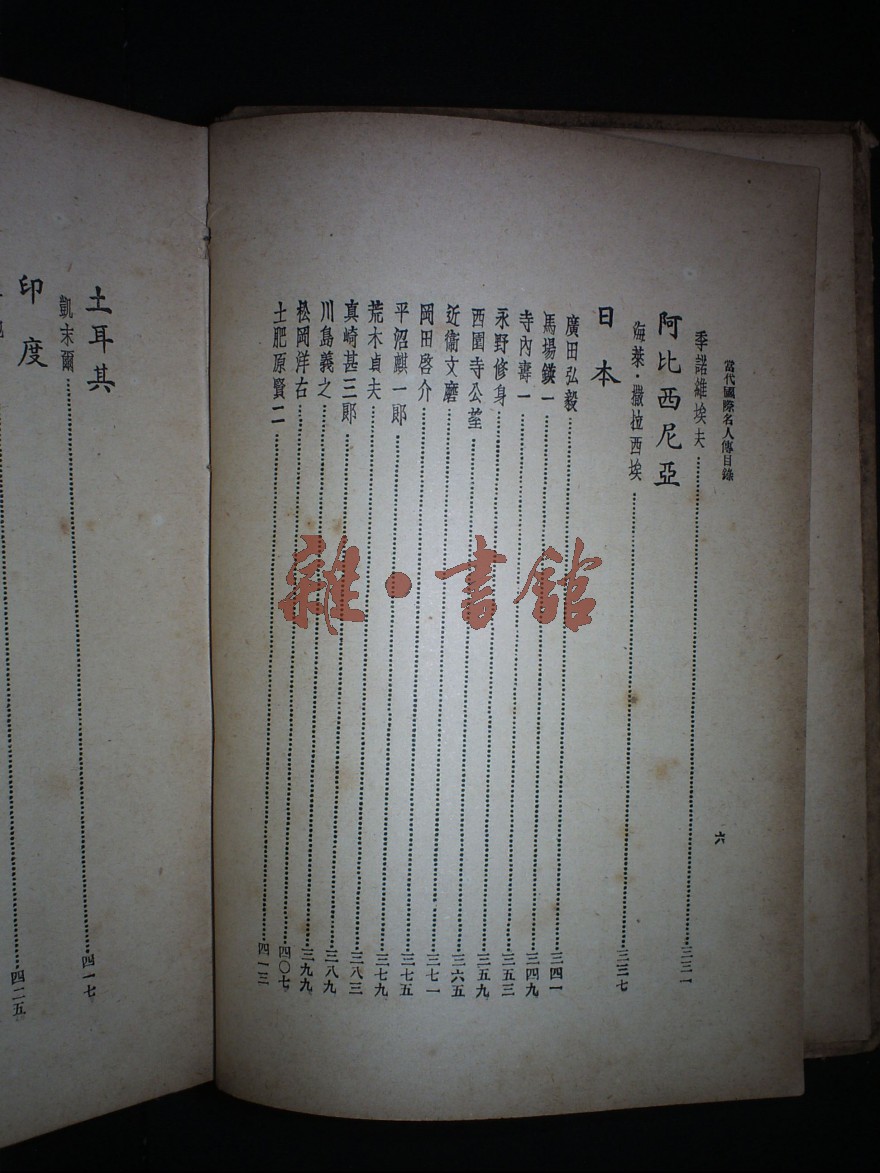 當代國際名人傳目錄
六
季諾維埃夫……三三一
阿比西尼亞
海萊·撒拉西埃……三三七
日本
廣田弘毅……三四一
馬場鍈一……三四九
寺內壽一……三五三
永野修身……三五九
西園寺公望……三六五
近衞文磨……三七一
岡田啓介……三七五
平沼麒一郎……三七九
荒木貞夫……三八三
真崎甚三郎……三八九
川島義之……三九九
松岡洋右……四〇七
土肥原賢二……四一三
土耳其
凱末爾……四一七
印度
……四二五
雜·書館